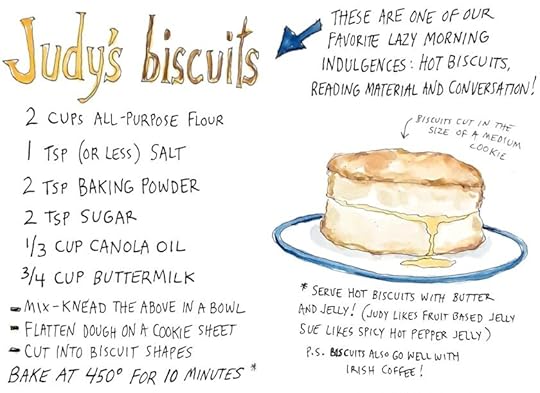 Judy's biscuits
2 CUPS ALL-PURPOSE FLOUR
1 TSP (OR LESS) SALT
2 TSP BAKING POWDER
2 TSP SUGAR
1/3 CUP CANOLA OIL
3/4 CUP BUTTERMILK
- MIX-KNEAD THE ABOVE IN A BOWL
- FLATTEN DOUGH ON A COOKIE SHEET
- CUT INTO BISCUIT SHAPES
BAKE AT 450° FOR 10 MINUTES *
THESE ARE ONE OF OUR
FAVORITE LAZY MORNING
INDULGENCES: HOT BISCUITS,
READING MATERIAL AND CONVERSATION!
BISCUITS CUT IN THE
SIZE OF A MEDIUM
COOKIE
* SERVE HOT BISCUITS WITH BUTTER
AND JELLY! (JUDY LIKES FRUIT BASED JELLY
SUE LIKES SPICY HOT PEPPER JELLY)
P.S. BISCUITS ALSO GO WELL WITH
IRISH COFFEE!